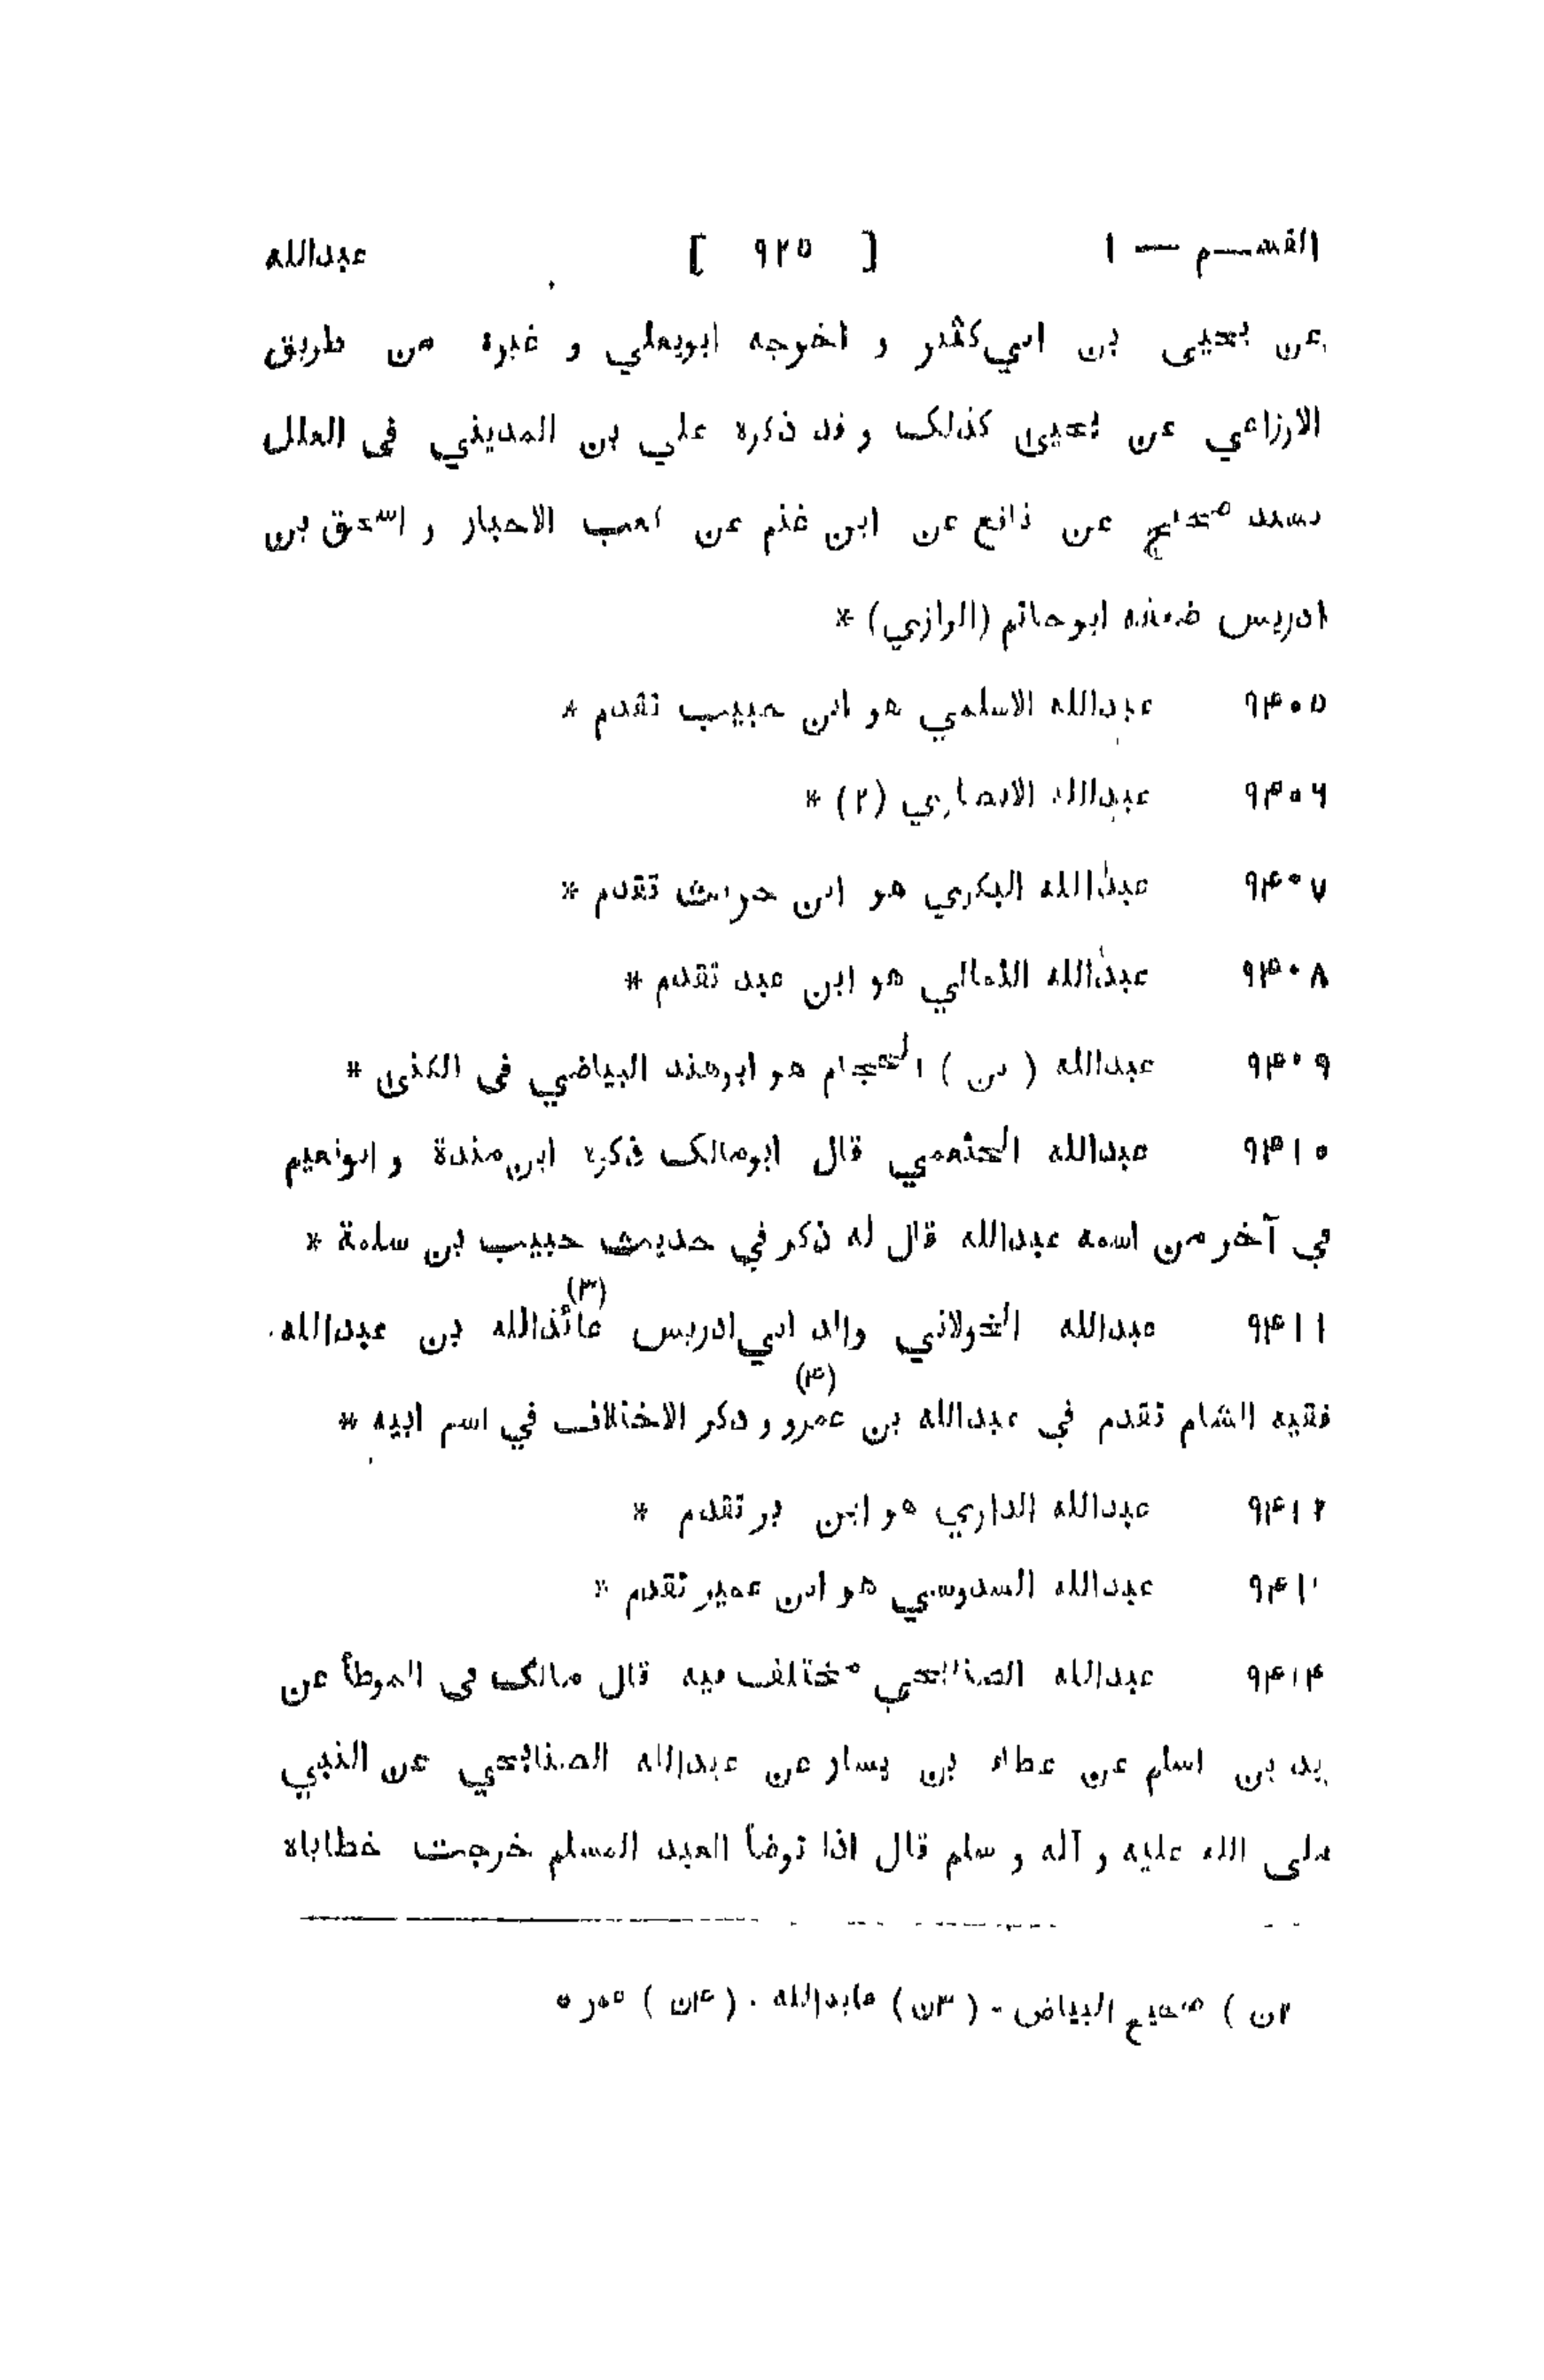 القسم — ١ [ ٩٢٥ ] عبدالله
عن يحيى بن ابي كثير و اخرجه ابويعلي و غيره من طريق
الاوزاعي عن يحيى كذلك و قد ذكره علي بن المديني في العلل
بسند صحيح عن نافع عن ابن غنم عن كعب الاحبار و اسحق بن
ادريس ضعفه ابوحاتم (الرازي) *
٩٤٠٥ عبدالله الاسلمي هو ابن حبيب تقدم *
٩٤٠٦ عبدالله الانصاري (٢) *
٩٤٠٧ عبدالله البكري هو ابن حريث تقدم *
٩٤٠٨ عبدالله الثمالي هو ابن عبد تقدم *
٩٤٠٩ عبدالله ( بن ) الحجام هو ابوهند البياضي في الكنى *
٩٤١٠ عبدالله الخثعمي قال ابومالك ذكره ابن مندة و ابونعيم
في آخر من اسمه عبدالله قال له ذكر في حديث حبيب بن سلمة *
٩٤١١ عبدالله الخولاني والد ابي ادريس عائذالله (٣) بن عبدالله
فقيه الشام تقدم في عبدالله بن عمرو (٤) و ذكر الاختلاف في اسم ابيه *
٩٤١٢ عبدالله الداري هو ابن بر تقدم *
٩٤١ عبدالله السدوسي هو ابن عمير تقدم *
٩٤١٤ عبدالله الصنابحي مختلف فيه قال مالك في الموطأ عن
يد بن اسلم عن عطاء بن يسار عن عبدالله الصنابحي عن النبي
صلى الله عليه و آله و سلم قال اذا توضأ العبد المسلم خرجت خطاياه
٢ن ) صحيح البياض - ( ٣ن ) عابدالله . ( ٤ن ) عمر *